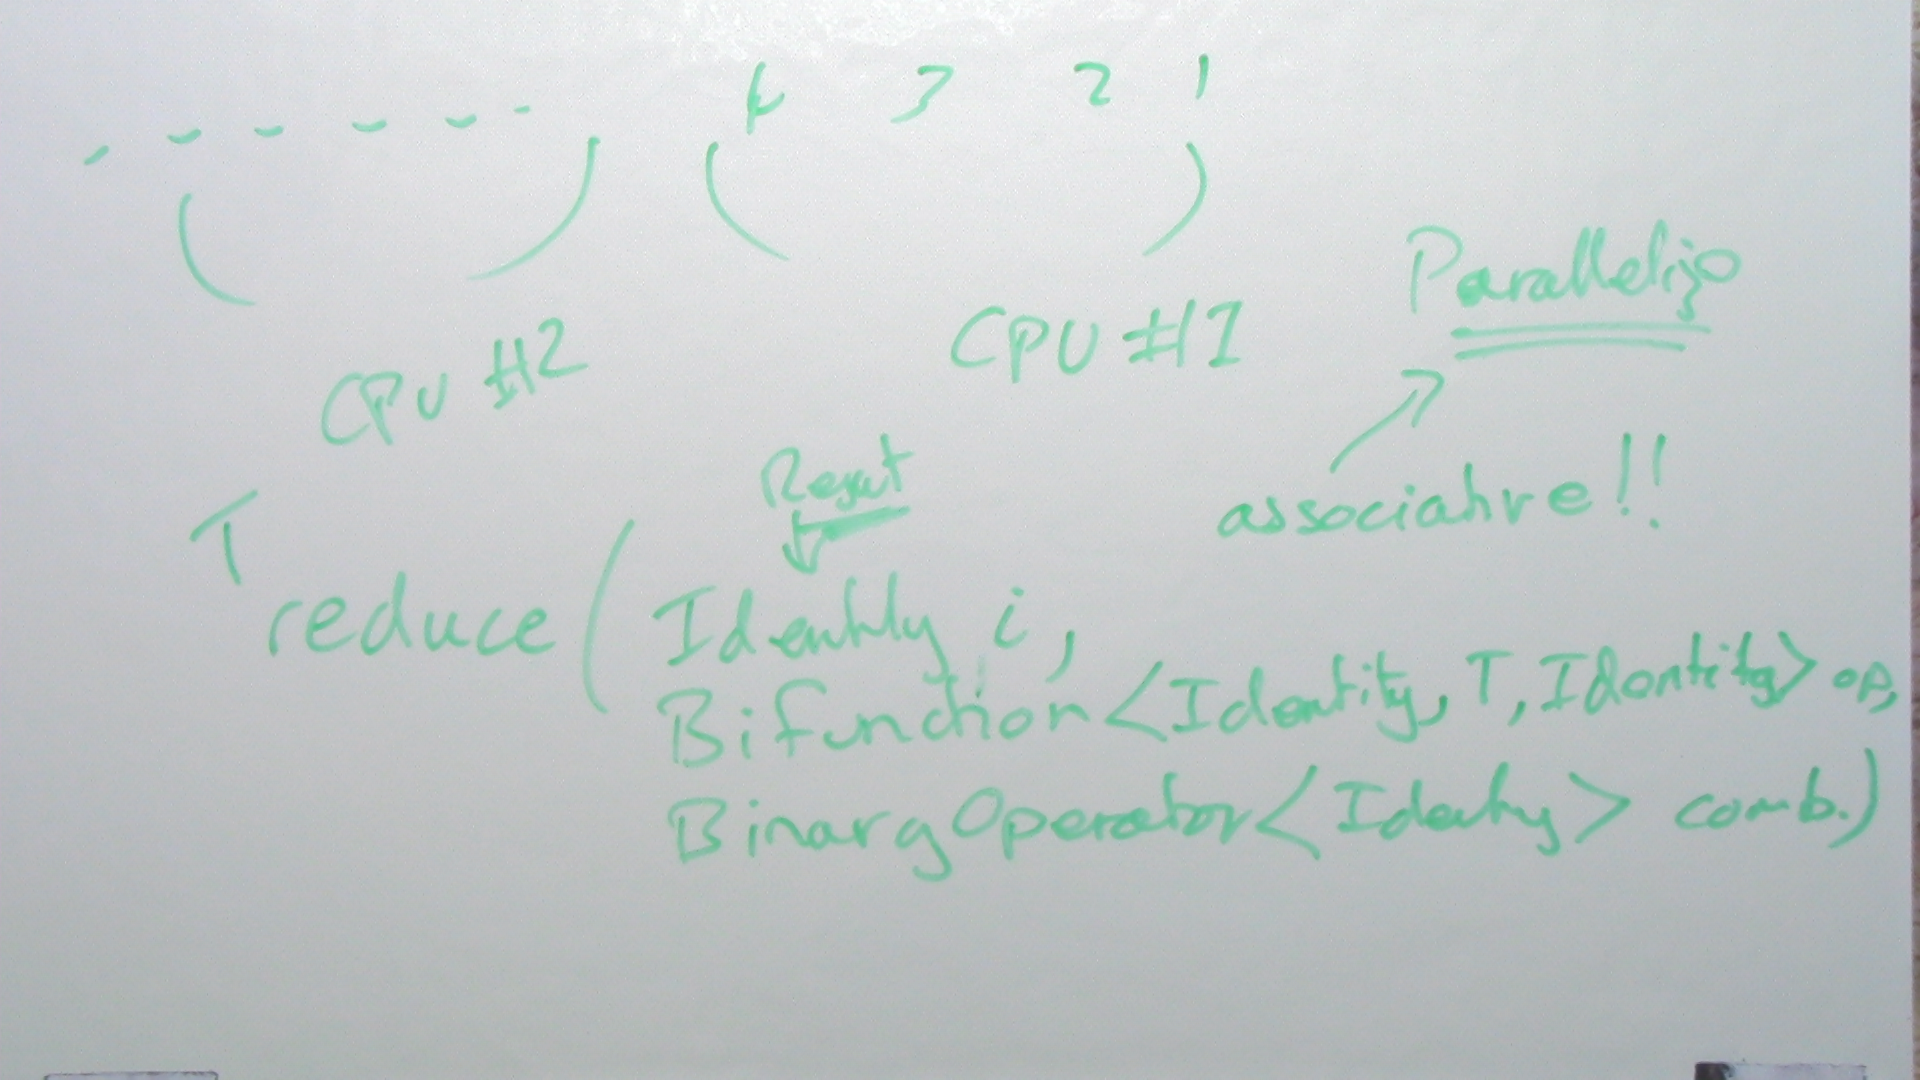 4 3 2 1
CPU #2
CPU #1
Parallelize
associative!!
T
reduce (Identity i,
Bifunction<Identity, T, Identity> op,
BinaryOperator<Identity> comb.)